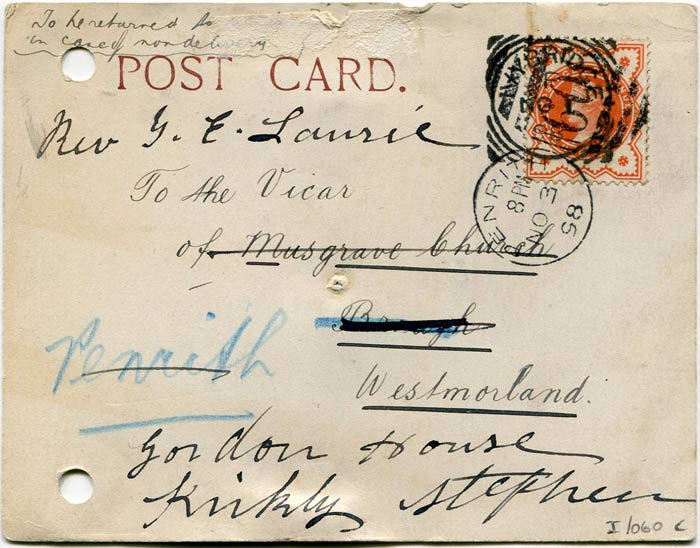 To be returned to
in case of nondelivery
POST CARD.
Rev G. E. Laurie
To the Vicar
of Musgrave Church
Brough
Penrith
Westmorland.
Gordon House
Kirkby Stephen
PENRITH
8 PM
NO 3
85
I/060 c